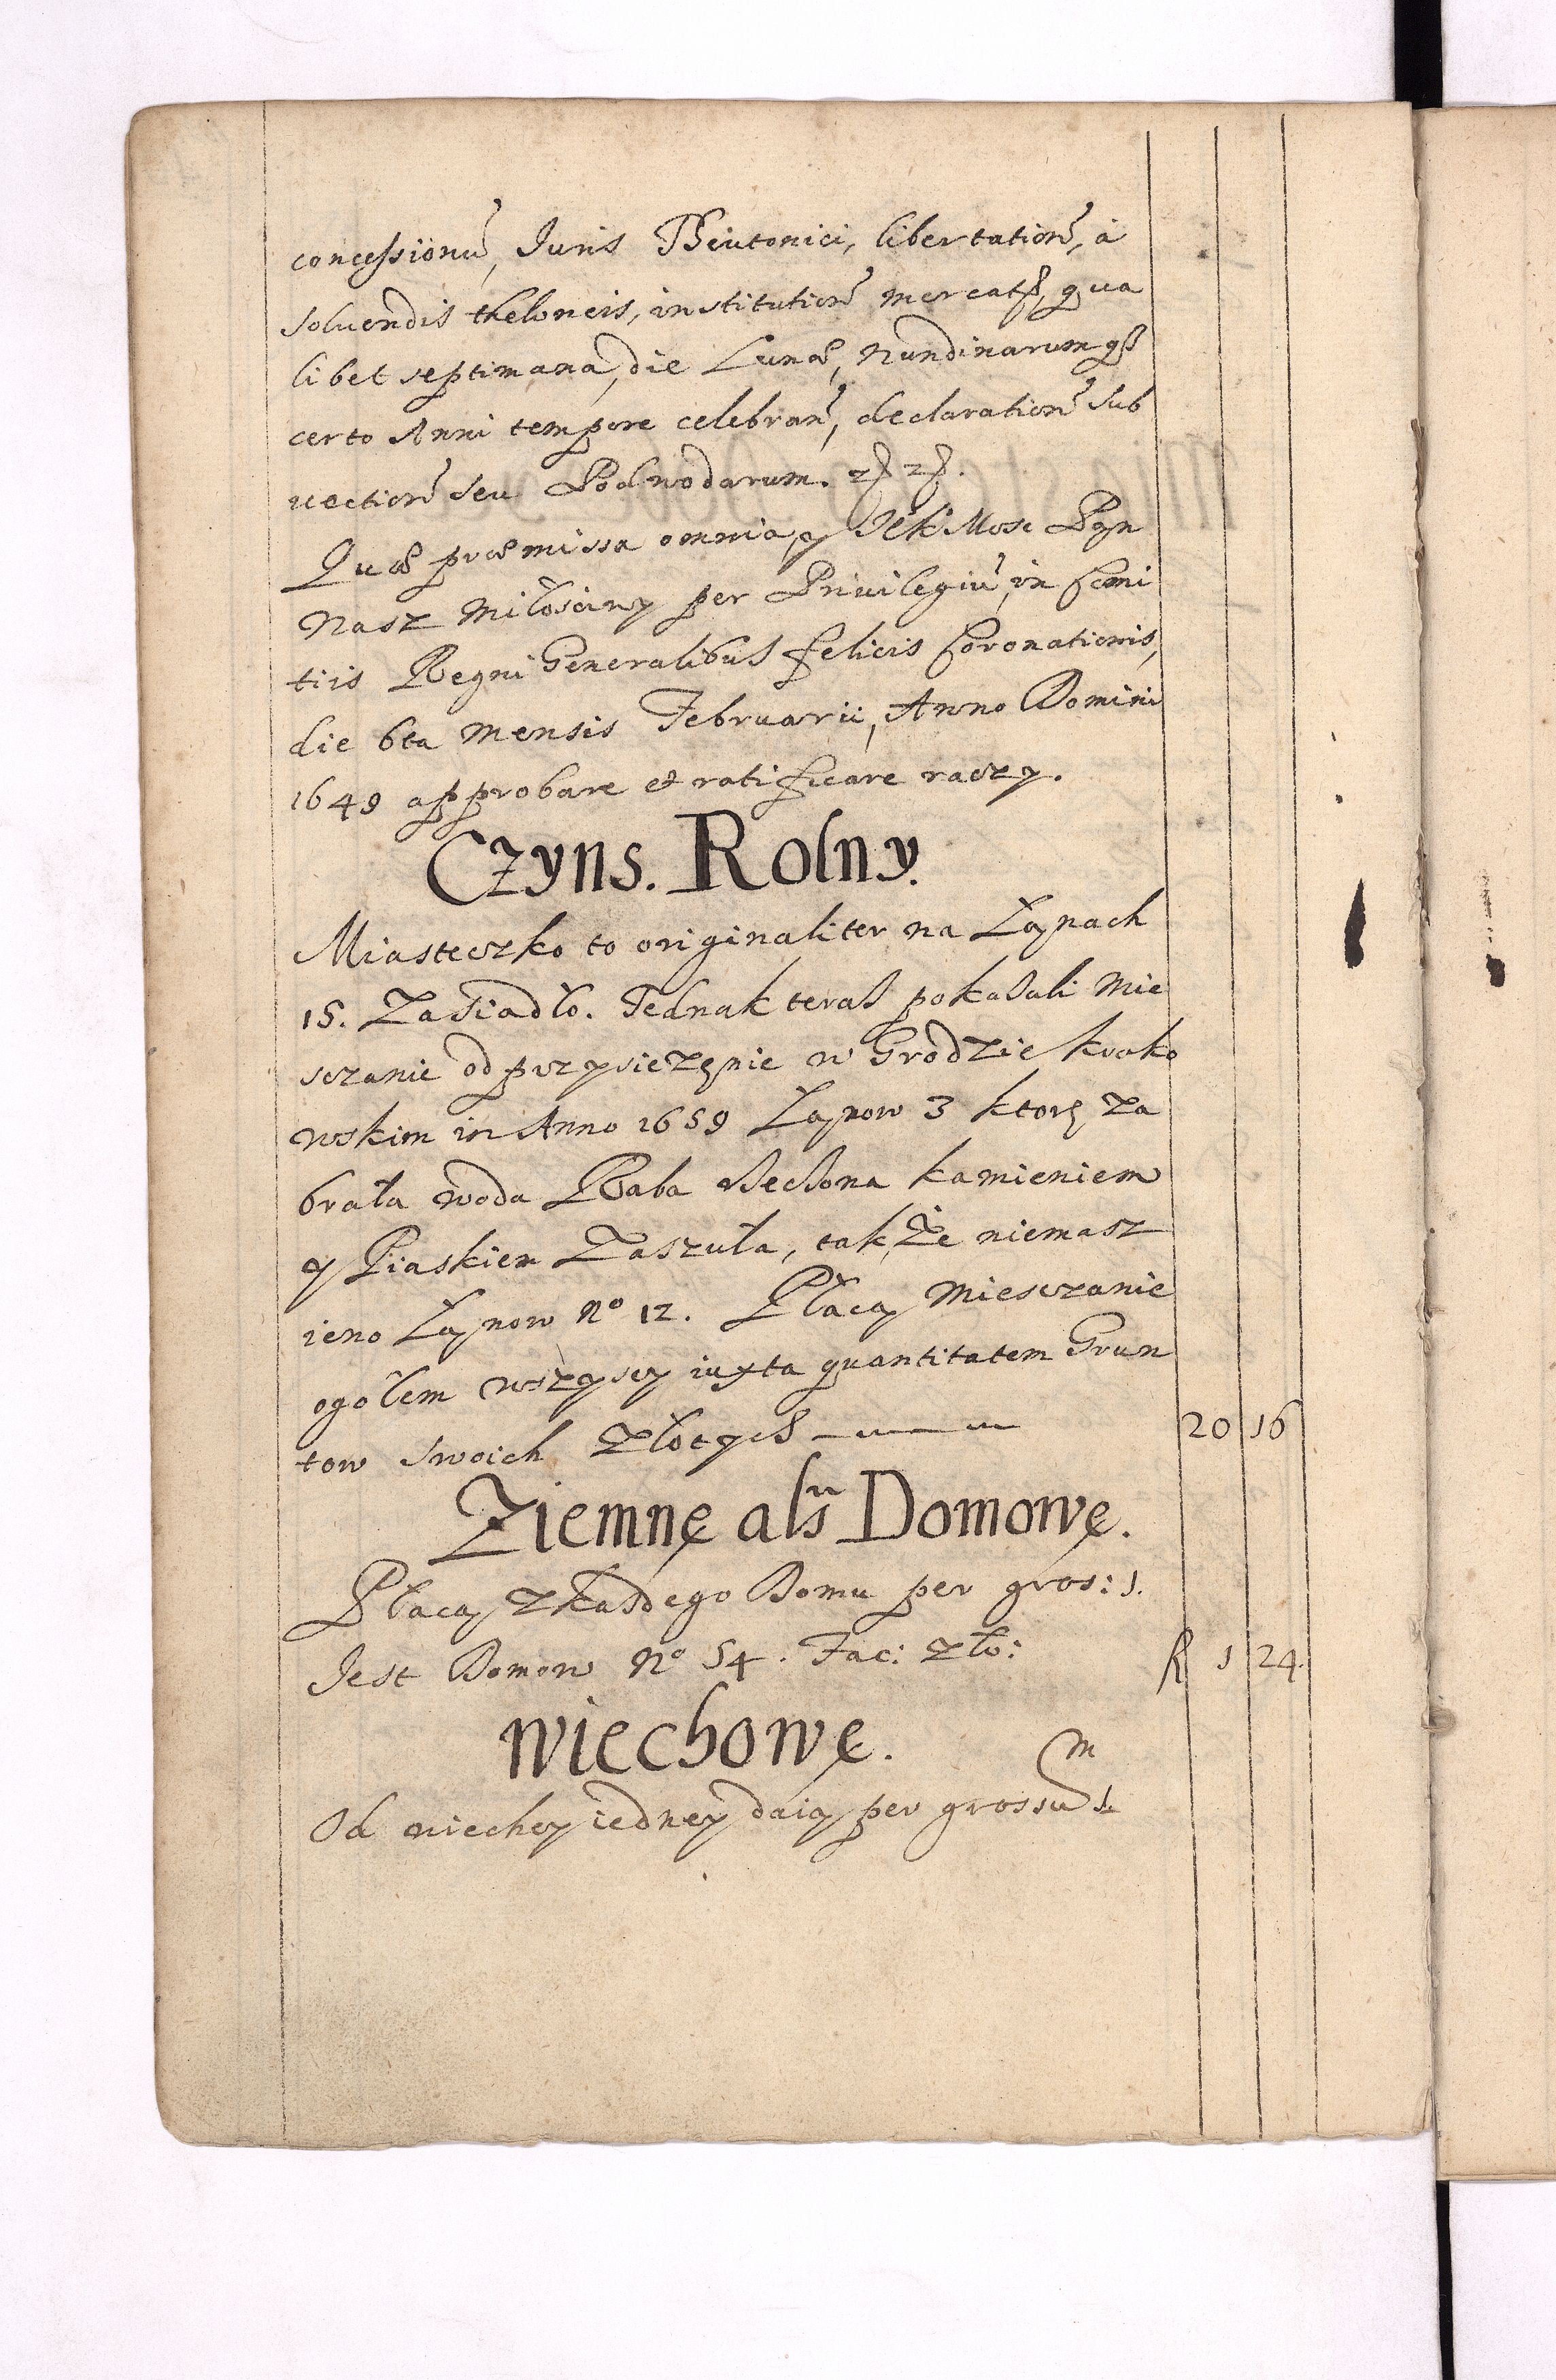 concessionũ, Juris Theutonici, libertationẽ, à
soluendis theloneis, institutionẽ mercat, qua
libet septimana, die Lunæ, Nundinarumqȝ
certo Anni tempore celebran, declarationẽ sub
uectionẽ seu Podwodarum.
Quæ præmissa omnia, y JeKMośc Pąn
Nasz Miłosciwy per Priuilegiũ, in Comi
tiis Regni Generalibus felicis Coronationis,
die 6ta Mensis Februarii, Anno Domini
1649 approbare et ratificare raczy.
Czyns. Rolny.
Miasteczko to originaliter na Łąnach
15. Zasiadło. Jednak teras pokasali Mie
sczanie odprzysiezęnie w Grodzie krako
wskim in Anno 1659 Łąnow 3 ktorę Za
brała woda Raba rzeczona kamieniem
y Piaskiem Zaszuła, tak, Że niemasz
ieno Łąnow No 12. Płacą Miesczanie
ogołem wszyscy iuxta quantitatem Grun
tow swoich Złotych 20 16
Ziemnę als Domowę.
Płacą Zkasdego Domu per gros: 1.
Jest Domow No 54. Fac: Zło: R 1 24.
wiechowę.
Od wiechy iedney daią per grossum 1.